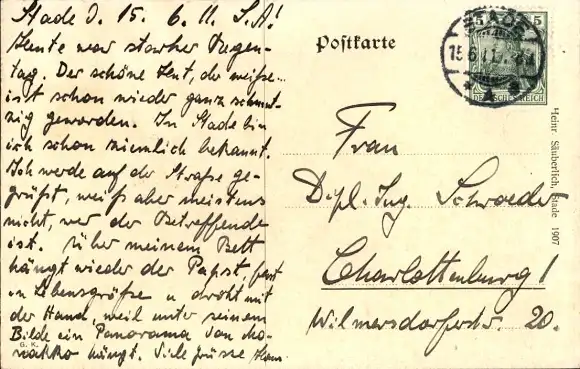 Stade d. 15. 6. 11. S. A!
Heute war starker Regen-
tag. Der schöne Hut, der weiße..
ist schon wieder ganz schmut-
zig geworden. In Stade bin
ich schon ziemlich bekannt.
Ich werde auf der Straße ge-
grüßt, weiß aber meistens
nicht, wer der Betreffende
ist. Über meinem Bett
hängt wieder der Papst, fast
in Lebensgröße u droht mit
der Hand, weil unter seinem
Bilde ein Panorama von Mo-
rakko hängt. Viele Grüsse
G. K.
Postkarte
STADE
15.6.11.
5 5
DEUTSCHES REICH
Frau
Dipl. Ing. Schroeder
Charlottenburg 1
Wilmersdorferstr. 20.
Heinr. Säuberlich, Stade 1907